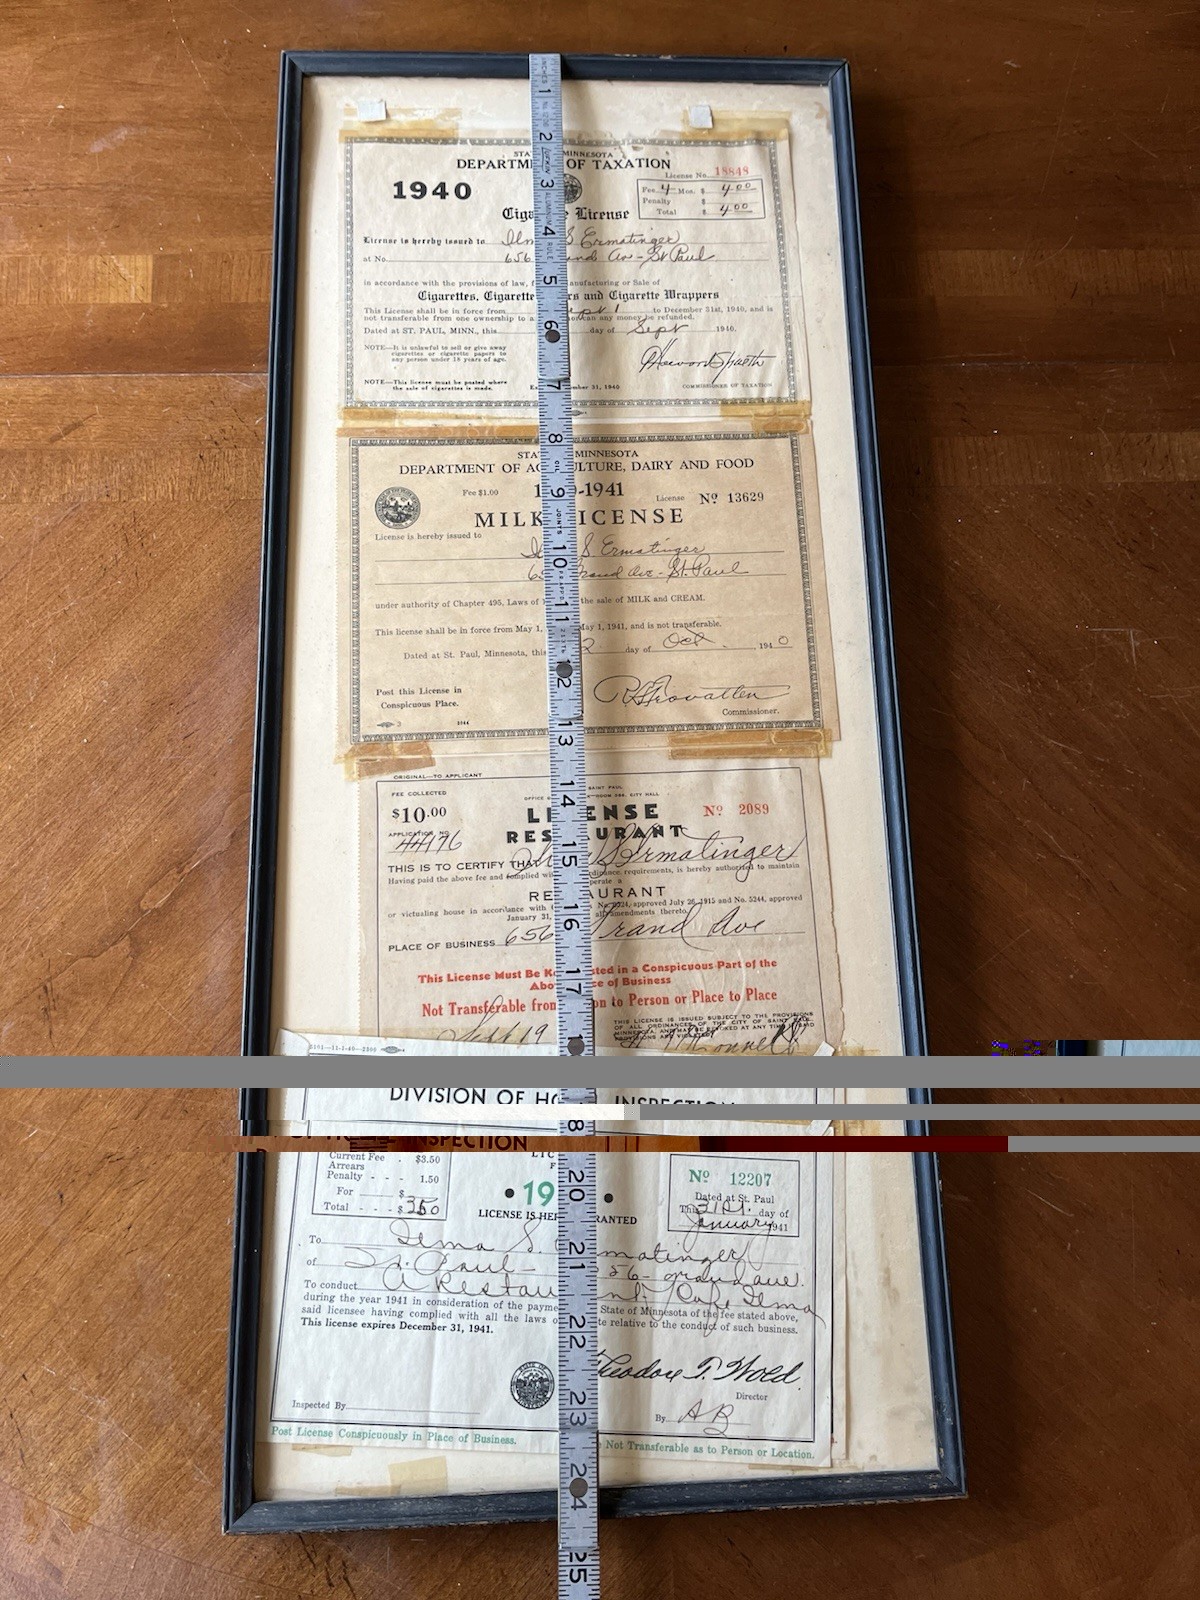 STA MINNESOTA
DEPARTM OF TAXATION
License No. 18848
1940
Fee 4 Mos. $ 4 00
Penalty $
Total $ 4 00
Ciga e License
License is hereby issued to S Ermatinger
at No. 656 and Av - St Paul
in accordance with the provisions of law, anufacturing or Sale of
Cigarettes, Cigarette rs and Cigarette Wrappers
This License shall be in force from ept 1 to December 31st, 1940, and is
not transferable from one ownership to a can any money be refunded.
Dated at ST. PAUL, MINN., this day of Sept 1940.
NOTE—It is unlawful to sell or give away
cigarettes or cigarette papers to
any person under 18 years of age.
NOTE—This license must be posted where
the sale of cigarettes is made.
mber 31, 1940
COMMISSIONER OF TAXATION
STA MINNESOTA
DEPARTMENT OF AG ULTURE, DAIRY AND FOOD
Fee $1.00
1 0-1941
License No 13629
MILK ICENSE
License is hereby issued to
S Ermatinger
65 rand Ave - St. Paul
under authority of Chapter 495, Laws of the sale of MILK and CREAM.
This license shall be in force from May 1, May 1, 1941, and is not transferable.
Dated at St. Paul, Minnesota, this 2 day of Oct. 1940
Post this License in
Conspicuous Place.
Commissioner.
ORIGINAL—TO APPLICANT
SAINT PAUL
CITY HALL
FEE COLLECTED
$10.00
LI ENSE
No 2089
APPLICATION NO.
44176
RES AURANT
THIS IS TO CERTIFY THAT S Ermatinger
Having paid the above fee and complied wi dinance requirements, is hereby authorized to maintain
perate a
RE AURANT
or victualing house in accordance with No. 2324, approved July 26, 1915 and No. 5244, approved
January 31, all amendments thereto.
PLACE OF BUSINESS 656 Grand Ave
This License Must Be Ke sted in a Conspicuous Part of the
Abo ce of Business
Not Transferable from on to Person or Place to Place
Sept 19
THIS LICENSE IS ISSUED SUBJECT TO THE PROVISIONS
OF ALL ORDINANCES OF THE CITY OF SAINT PAUL,
MINNESOTA, AND MAY BE REVOKED AT ANY TIME IF SAID
PROVISIONS ARE VIOLATED
DIVISION OF HO INSPECTION
INSPECTION
Current Fee $3.50
Arrears
Penalty - - - 1.50
For $
Total - - - $ 350
LIC
F
• 19 •
LICENSE IS HER RANTED
No 12207
Dated at St. Paul
This 31st. day of
January 1941
To Ilma S. rmatinger
of St. Paul - 56 - Grand ave.
To conduct A Restau nt / Cafe Ilma
during the year 1941 in consideration of the payme State of Minnesota of the fee stated above,
said licensee having complied with all the laws o te relative to the conduct of such business.
This license expires December 31, 1941.
Theodore T. Wold.
Director
Inspected By
By AB
Post License Conspicuously in Place of Business.
Not Transferable as to Person or Location.
INCHES
1
2
3
ALUMINUM
4
RULE
5
6
7
8
OIL
9
JOINTS
10
11
12
13
14
15
16
17
18
20
21
22
23
24
25